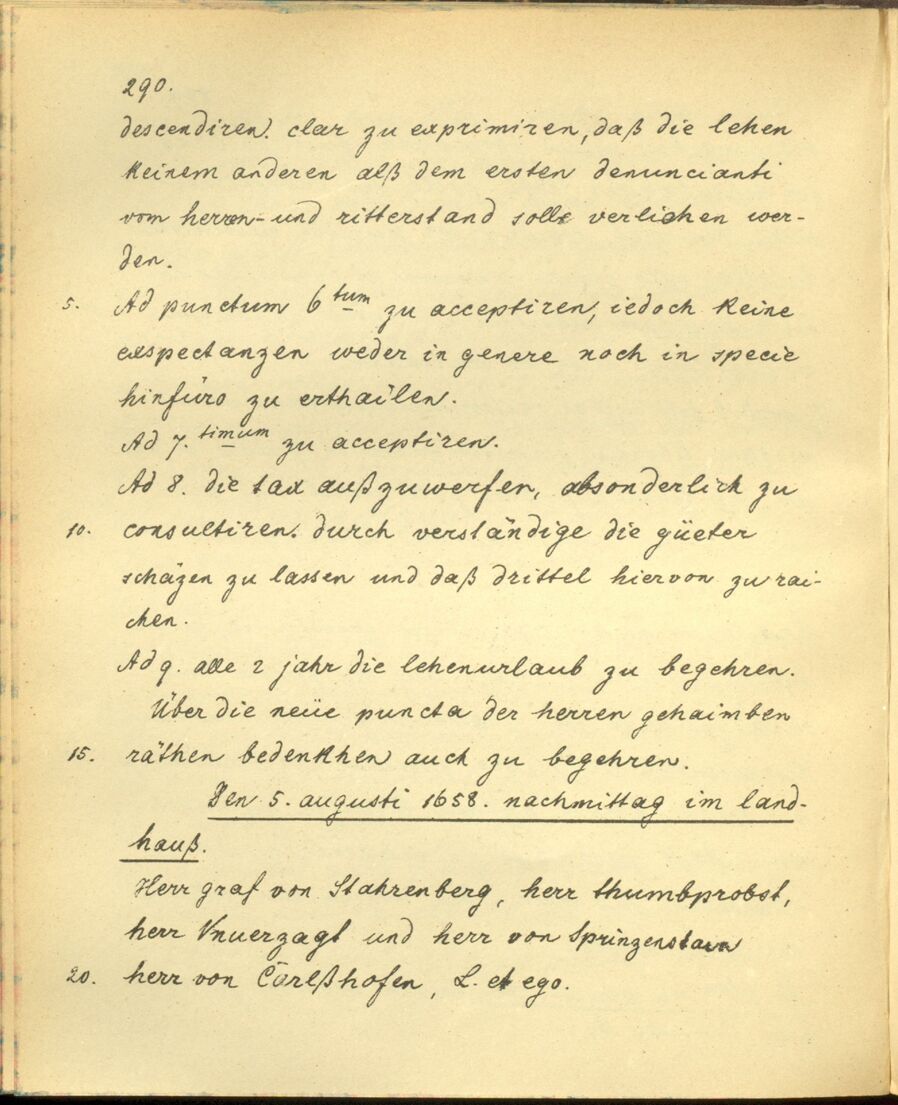 290.
descendiren. clar zu exprimiren, daß die lehen
keinem anderen alß dem ersten denuncianti
vom herren- und ritterstand solle verlichen wer-
den.
5. Ad punctum 6tum zu acceptiren, iedoch keine
exspectanzen weder in genere noch in specie
hinfüro zu erthaïlen.
Ad 7.timum zu acceptiren.
Ad 8. die tax außzuwerfen, absonderlich zu
10. consultiren. durch verständige die güeter
schäzen zu lassen und daß drittel hiervon zu rai-
chen.
Ad 9. alle 2 jahr die lehenurlaub zu begehren.
Über die neüe puncta der herren gehaimben
15. räthen bedenkhen auch zu begehren.
Den 5. augusti 1658. nachmittag im land-
hauß.
Herr graf von Stahrenberg, herr thumbprobst,
herr Vnuerzagt und herr von Sprinzenstain
20. herr von Carlßhofen, L. et ego.